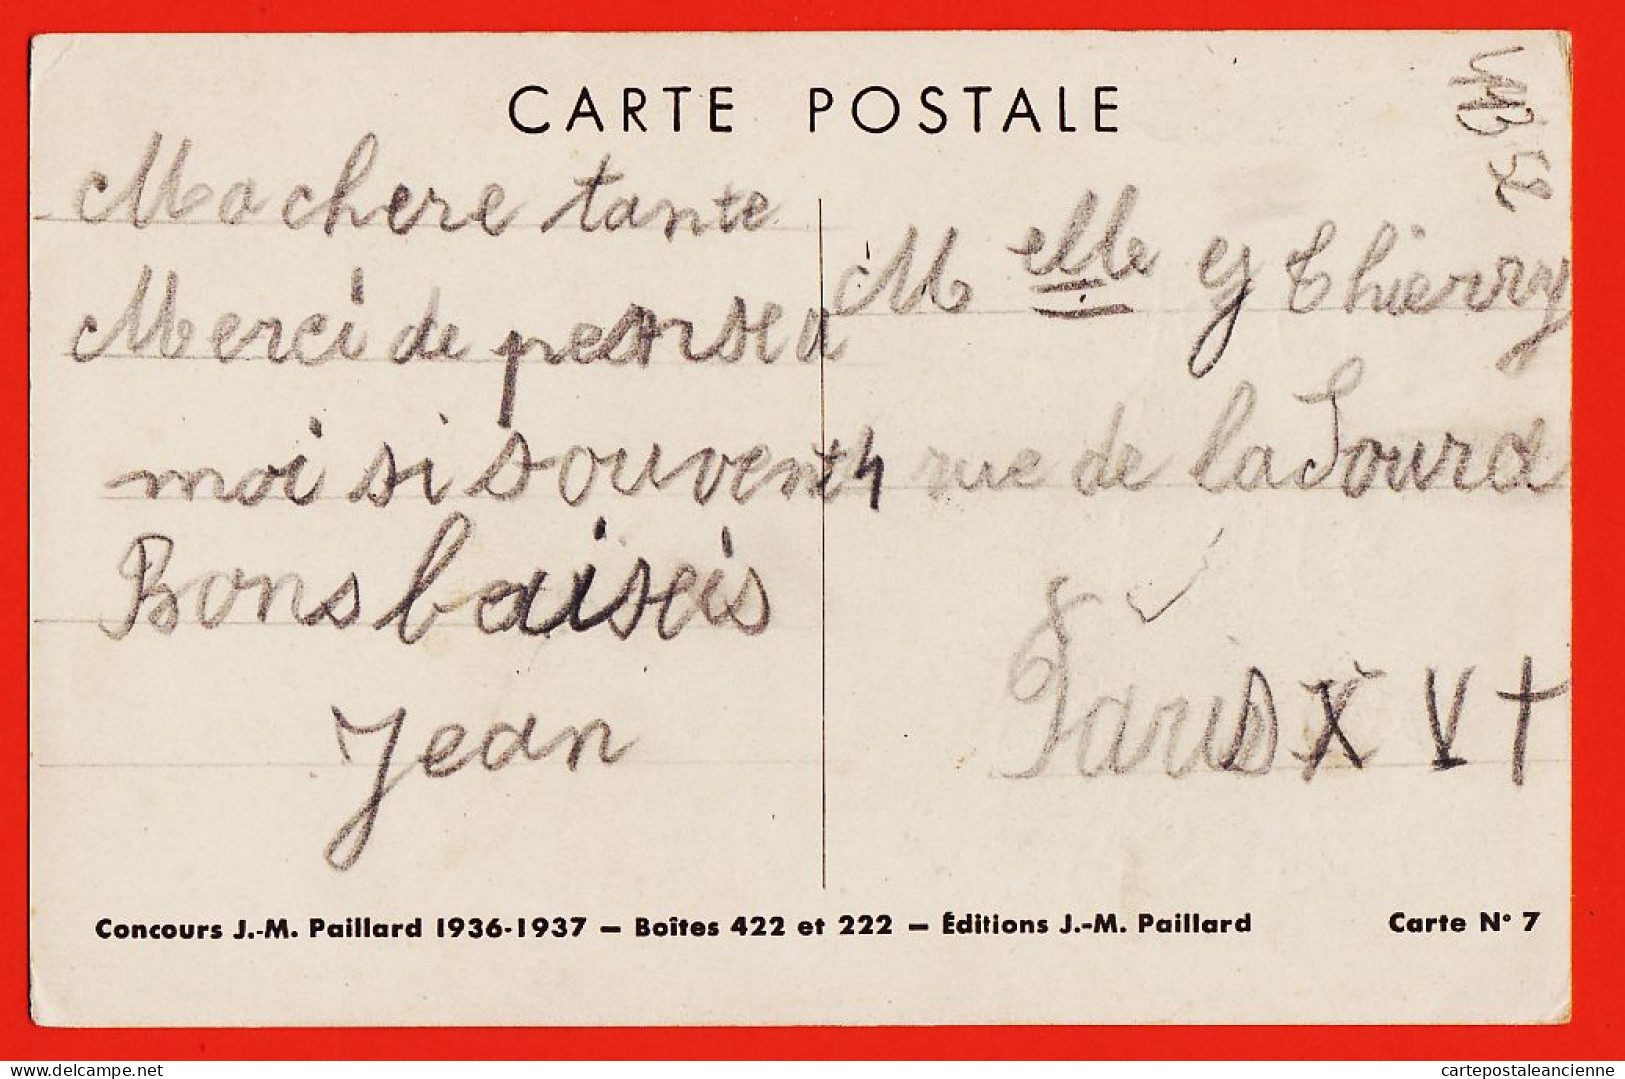 CARTE POSTALE
Ma chere tante
Merci de penser a
moi si souvent
Bons baiseis
Jean
Melle Y Thierry
4 rue de la Sourd
Paris XVI
Concours J.-M. Paillard 1936-1937 — Boîtes 422 et 222 — Éditions J.-M. Paillard Carte N° 7
delcampe.net
cartepostaleancienne